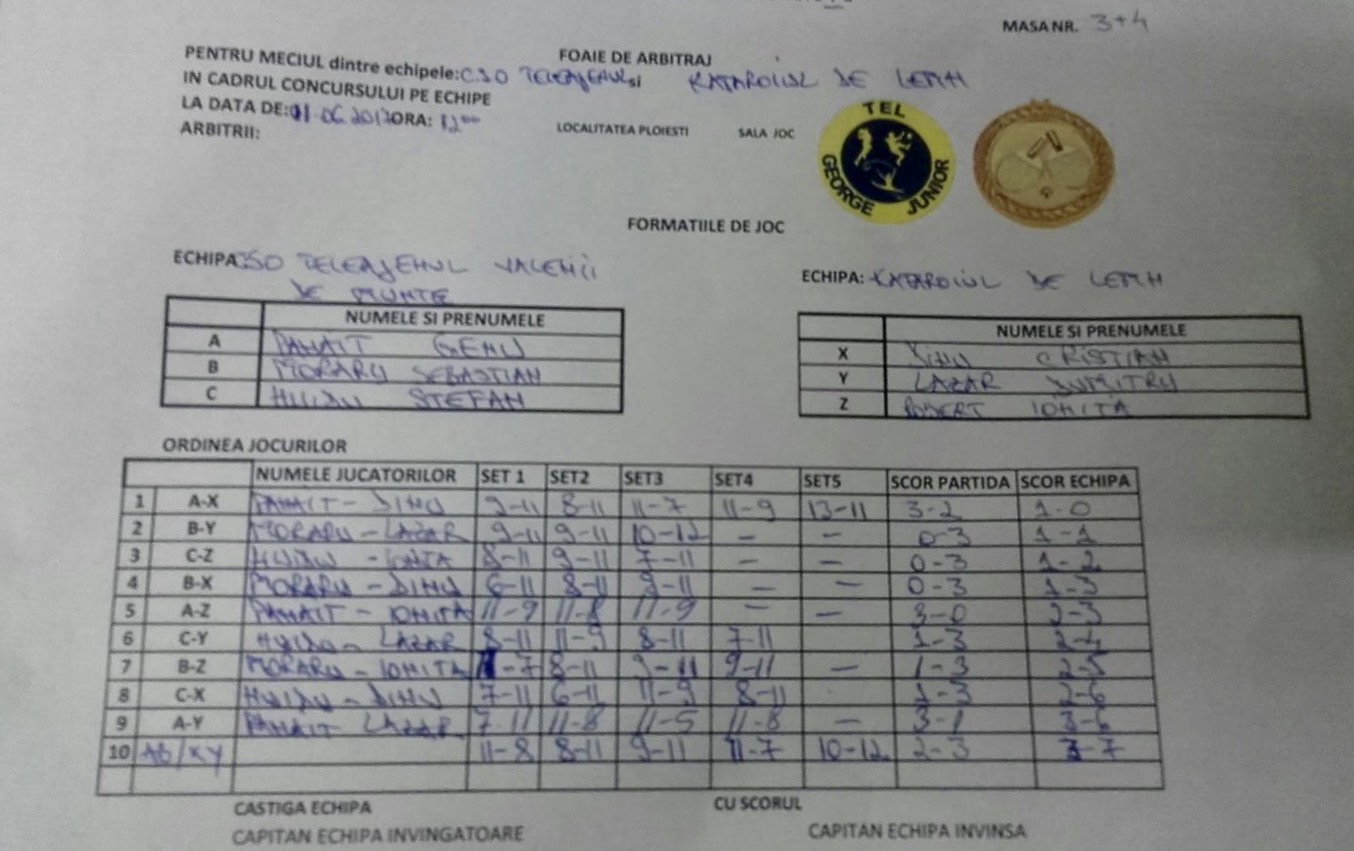 MASA NR. 3+4
FOAIE DE ARBITRAJ
PENTRU MECIUL dintre echipele: CSO TELEAJENUL si KATAROIUL DE LEMN
IN CADRUL CONCURSULUI PE ECHIPE
LA DATA DE: 01.06.2017 ORA: 12⁰⁰
ARBITRII: LOCALITATEA PLOIESTI SALA JOC
TEL
GEORGE JUNIOR
FORMATIILE DE JOC
ECHIPA: CSO TELEAJENUL VALENII DE MUNTE
ECHIPA: KATAROIUL DE LEMN
NUMELE SI PRENUMELE
A PANAIT GENU
B MORARU SEBASTIAN
C HUIDU STEFAN
NUMELE SI PRENUMELE
X DINU CRISTIAN
Y LAZAR DUMITRU
Z ROBERT IONITA
ORDINEA JOCURILOR
NUMELE JUCATORILOR SET 1 SET2 SET3 SET4 SET5 SCOR PARTIDA SCOR ECHIPA
1 A-X PANAIT - DINU 9-11 8-11 11-7 11-9 13-11 3-2 1-0
2 B-Y MORARU - LAZAR 9-11 9-11 10-12 - - 0-3 1-1
3 C-Z HUIDU - IONITA 8-11 9-11 7-11 - - 0-3 1-2
4 B-X MORARU - DINU 6-11 8-11 9-11 - - 0-3 1-3
5 A-Z PANAIT - IONITA 11-9 11-8 11-9 - - 3-0 2-3
6 C-Y HUIDU - LAZAR 8-11 11-9 8-11 7-11 1-3 2-4
7 B-Z MORARU - IONITA 11-7 8-11 9-11 9-11 - 1-3 2-5
8 C-X HUIDU - DINU 7-11 6-11 11-9 8-11 1-3 2-6
9 A-Y PANAIT - LAZAR 7-11 11-8 11-5 11-8 - 3-1 3-6
10 AB/XY 11-8 8-11 9-11 11-7 10-12 2-3 3-7
CASTIGA ECHIPA CU SCORUL
CAPITAN ECHIPA INVINGATOARE CAPITAN ECHIPA INVINSA